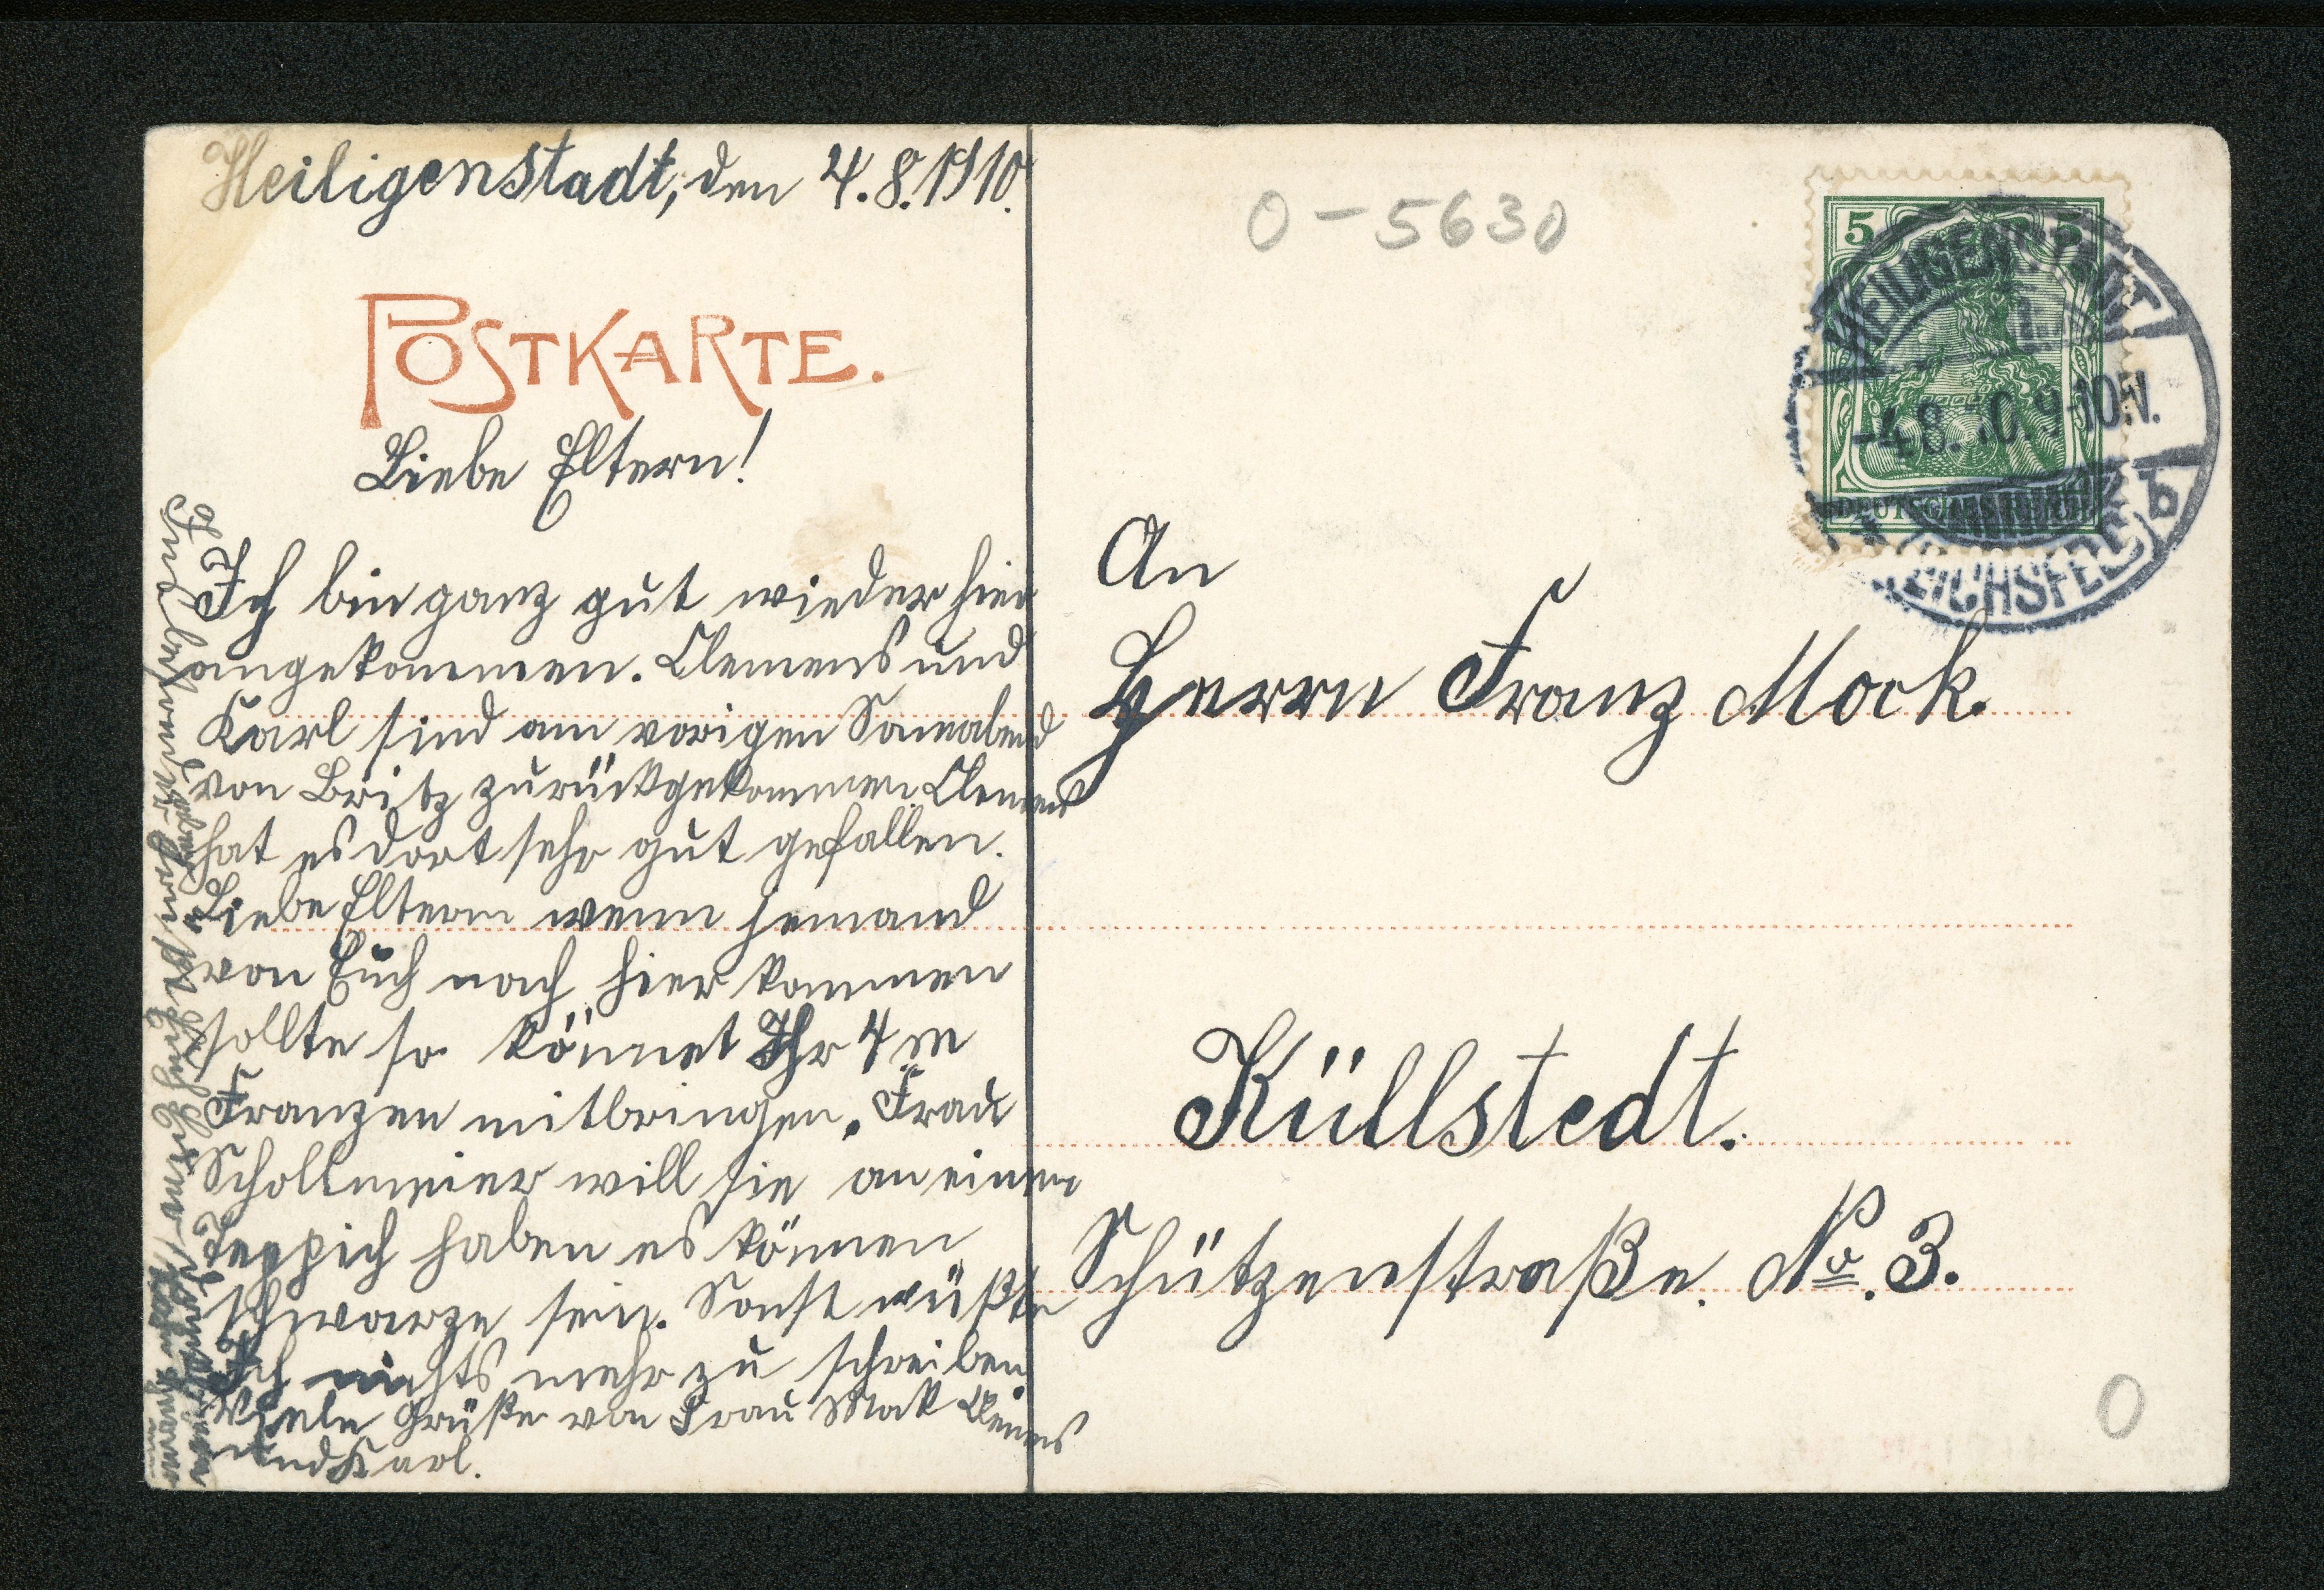 Heiligenstadt, den 4.8.1910.
POSTKARTE.
Liebe Eltern!
Ich bin ganz gut wieder hier
angekommen. Clemens und
Karl sind am vorigen Sonnabend
von Britz zurückgekommen Clemens
hat es dort sehr gut gefallen.
Liebe Eltern wenn jemand
von Euch nach hier kommen
sollte so könnet Ihr 4 m
Franzen mitbringen. Frau
Schollmeier will sie an einen
Teppich haben es können
schwarze sein. Sonst wüßte
ich nichts mehr zu schreiben
Viele Grüße von Frau Mock Clemens
und Karl.
0-5630
5 5
DEUTSCHES REICH
HEILIGENSTADT
-4.8.10.9-10N.
b
(EICHSFELD)
An
Herrn Franz Mock.
Küllstedt.
Schützenstraße. No. 3.
0